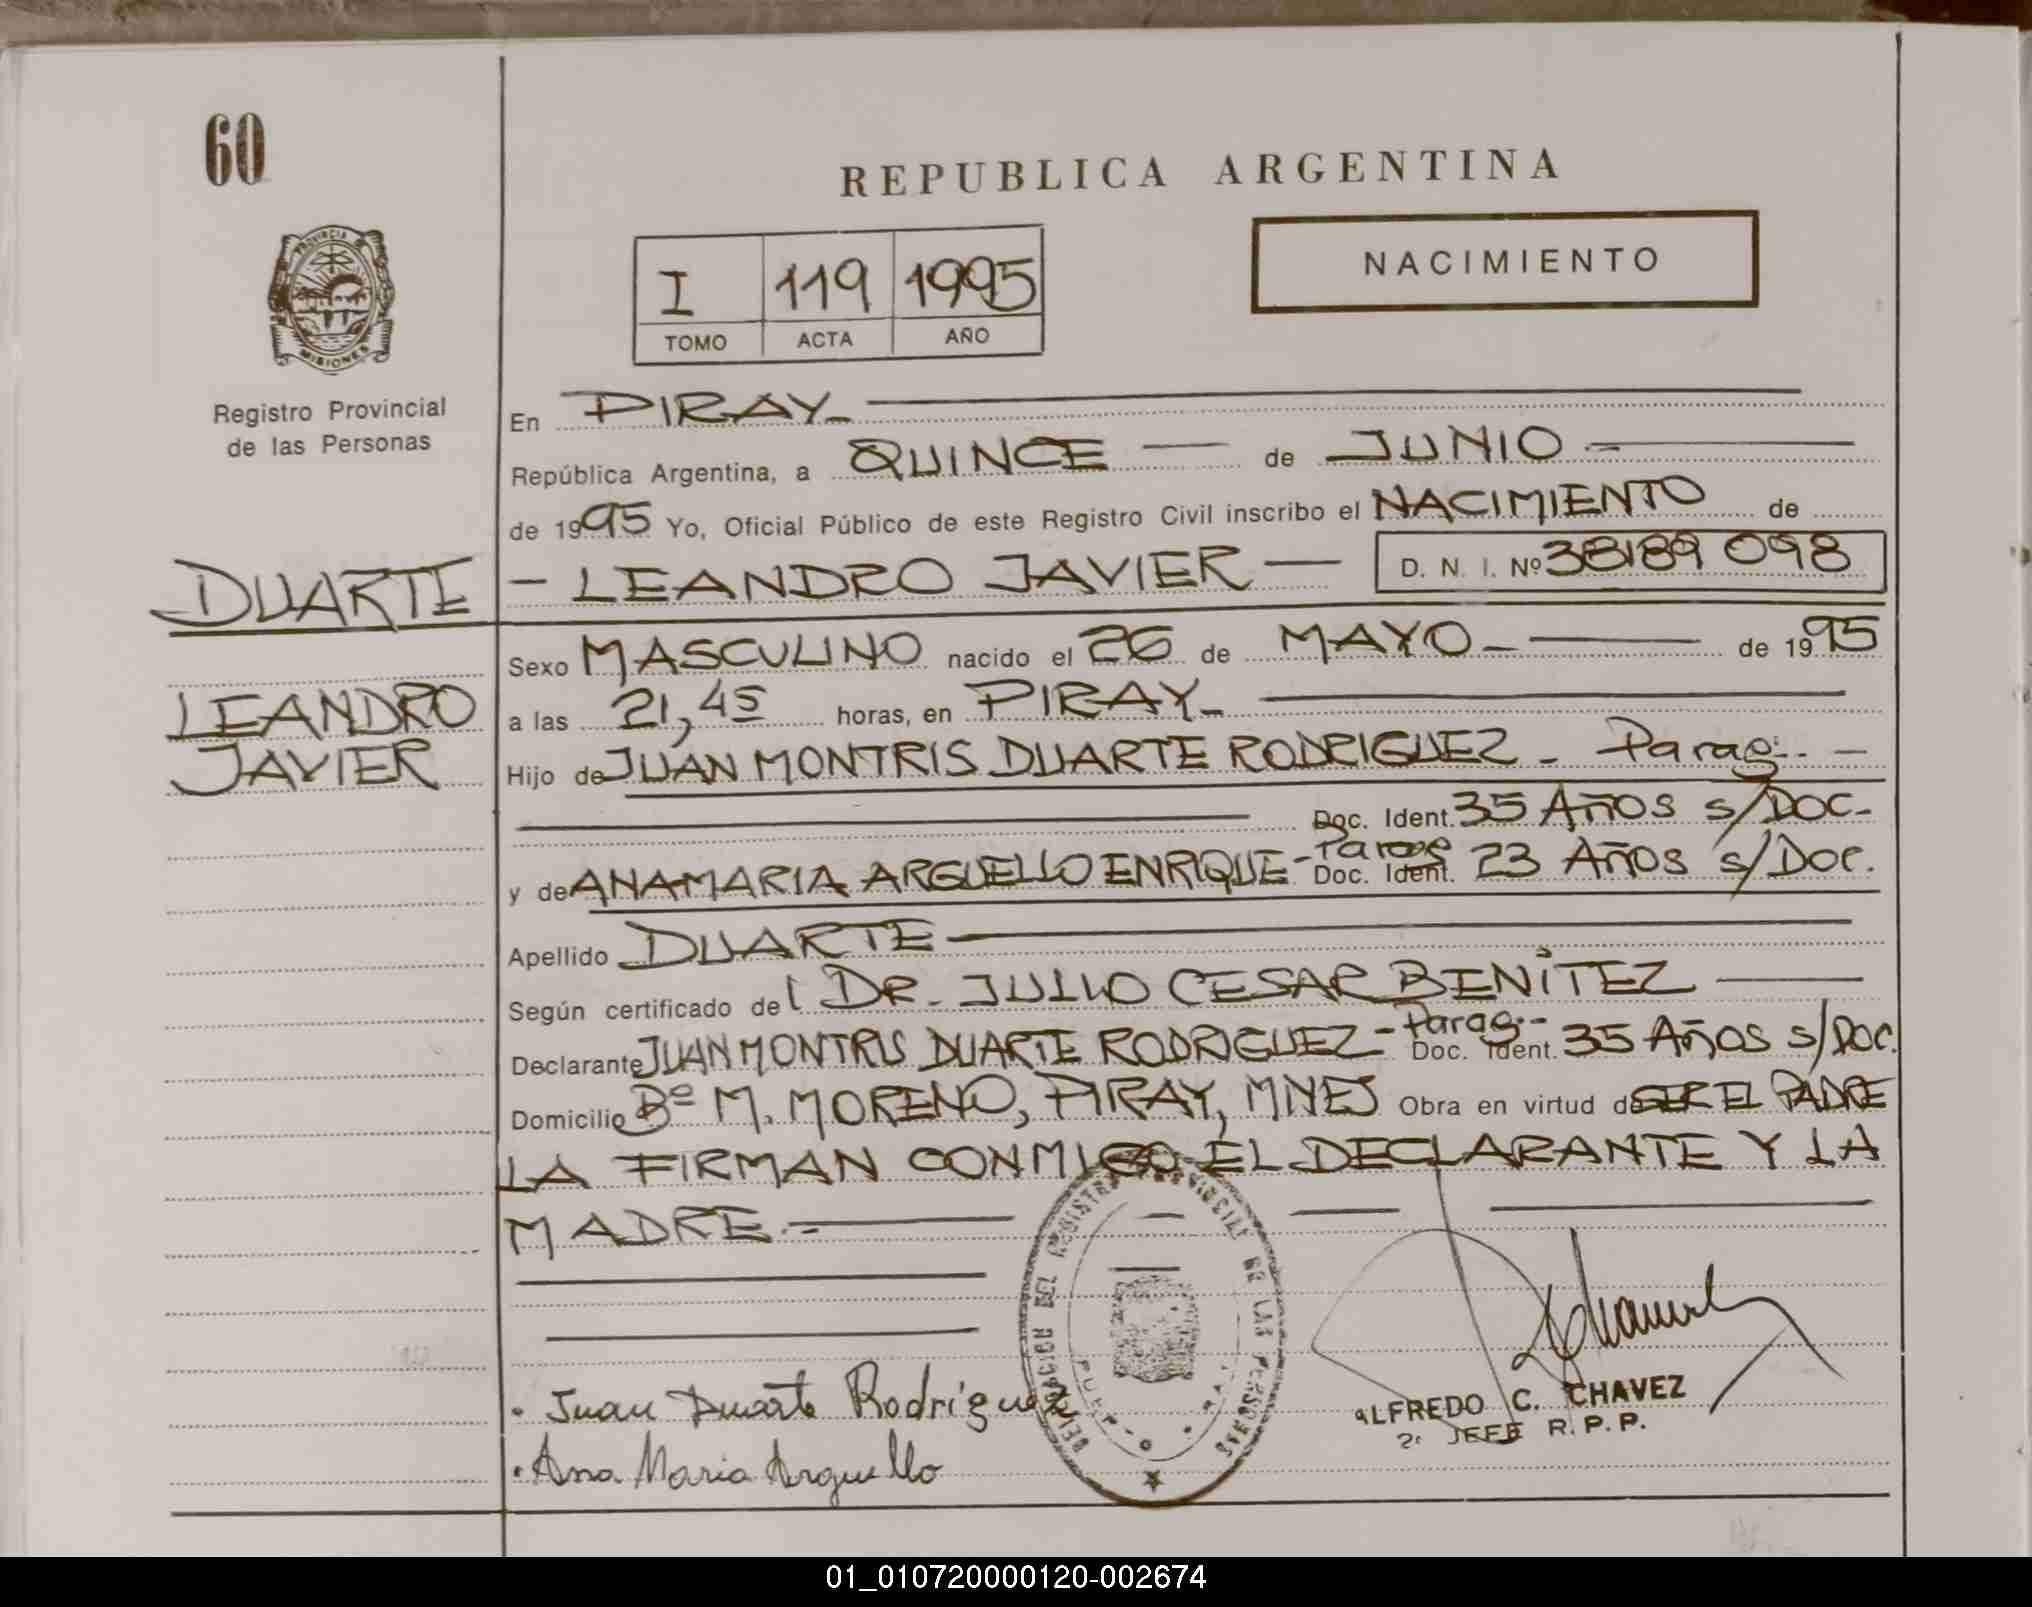 60
PROVINCIA DE
MISIONES
Registro Provincial
de las Personas
REPUBLICA ARGENTINA
I 119 1995
TOMO ACTA AÑO
NACIMIENTO
En PIRAY
República Argentina, a QUINCE de JUNIO
de 1995 Yo, Oficial Público de este Registro Civil inscribo el NACIMIENTO de
DUARTE - LEANDRO JAVIER - D. N. I. Nº 38189 098
Sexo MASCULINO nacido el 26 de MAYO de 1995
LEANDRO a las 21,45 horas, en PIRAY
JAVIER Hijo de JUAN MONTRIS DUARTE RODRIGUEZ - Parag. -
Doc. Ident. 35 AÑOS s/DOC.
y de ANA MARIA ARGUELLO ENRIQUE - Parag Doc. Ident. 23 AÑOS s/DOC.
Apellido DUARTE
Según certificado del DR. JULIO CESAR BENITEZ
Declarante JUAN MONTRIS DUARTE RODRIGUEZ - Parag. - Doc. Ident. 35 AÑOS s/DOC.
Domicilio Bº M. MORENO, PIRAY, MNES Obra en virtud de SER EL PADRE
LA FIRMAN CONMIGO EL DECLARANTE Y LA
MADRE.-
DELEGACION DEL REGISTRO PROVINCIAL DE LAS PERSONAS
Juan Duarte Rodriguez
Ana Maria Arguello
ALFREDO C. CHAVEZ
2º JEFE R. P. P.
01_010720000120-002674